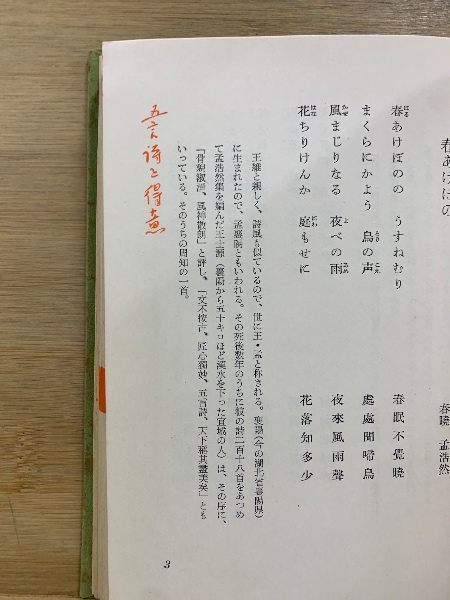 春あけぼの
春曉　孟浩然
春あけぼのの　うすねむり
まくらにかよう　鳥の声
風まじりなる　夜べの雨
花ちりけんか　庭もせに
春眠不覺曉
處處聞啼鳥
夜來風雨聲
花落知多少
王維と親しく、詩風も似ているので、世に王・孟と称される。襄陽(今の湖北省襄陽県)
に生まれたので、孟襄陽ともいわれる。その死後数年のうちに彼の詩二百十八首をあつめ
て孟浩然集を編んだ王士源(襄陽から五十キロほど漢水を下った宜城の人)は、その序に、
「骨貌淑清、風神散朗」と評し、「文不按古、匠心獨妙、五言詩、天下稱其盡美矣」とも
いっている。そのうちの周知の一首。
五言詩を得意
3